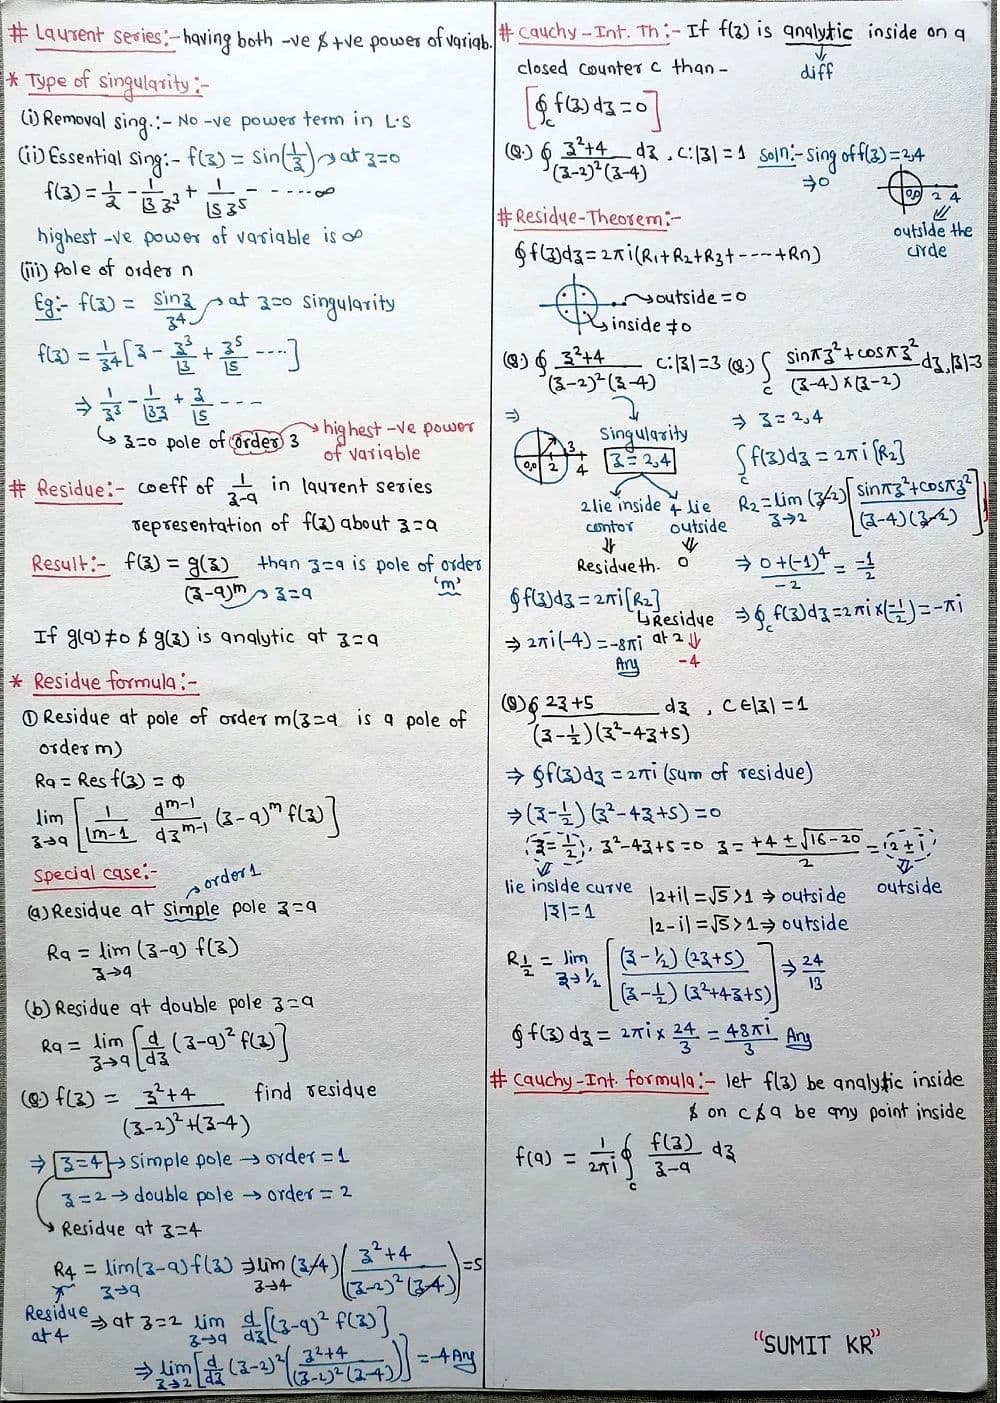 # Laurent series:- having both -ve & +ve power of variab.
* Type of singularity:-
(i) Removal sing.:- No -ve power term in L.S
(ii) Essential sing:- f(z) = sin(1/z) → at z=0
f(z) = 1/z - 1/(|3 z³) + 1/(|5 z⁵) - - ----∞
highest -ve power of variable is ∞
(iii) Pole of order n
Eg:- f(z) = sinz/z⁴ → at z=0 singularity
f(z) = 1/z⁴ [z - z³/|3 + z⁵/|5 ----]
⇒ 1/z³ - 1/(|3z) + z/|5 ---
↳ z=0 pole of order 3 → highest -ve power of variable
# Residue:- coeff of 1/(z-a) in laurent series
representation of f(z) about z=a
Result:- f(z) = g(z)/(z-a)^m than z=a is pole of order 'm'
→ z=a
If g(a)≠0 & g(z) is analytic at z=a
* Residue formula:-
① Residue at pole of order m (z=a is a pole of
order m)
Ra = Res f(z) = Φ
lim z→a [1/|m-1 d^m-1/dz^m-1 (z-a)^m f(z)]
Special case:-
→ order 1
(a) Residue at simple pole z=a
Ra = lim z→a (z-a) f(z)
(b) Residue at double pole z=a
Ra = lim z→a [d/dz (z-a)² f(z)]
(Q) f(z) = z²+4/(z-2)²+(z-4) find residue
⇒ z=4 → simple pole → order = 1
z=2 → double pole → order = 2
↳ Residue at z=4
R4 = lim z→a (z-a) f(z) ⇒ lim z→4 (z-4) (z²+4/(z-2)²(z-4)) = 5
Residue at 4
⇒ at z=2 lim z→a d/dz [(z-a)² f(z)]
⇒ lim z→2 [d/dz (z-2)² (z²+4/(z-2)²(z-4))] = -4 Ans
# Cauchy-Int. Th:- If f(z) is analytic inside on a
closed counter c than-
diff
[∮c f(z) dz = 0]
(Q.) ∮ z²+4/(z-2)²(z-4) dz, C:|z|=1 Soln:- sing of f(z)=2,4
⇒ 0
0,0 2 4
outside the
circle
# Residue-Theorem:-
∮f(z)dz = 2πi(R1+R2+R3+----+Rn)
→ outside = 0
↳ inside ≠ 0
(Q.) ∮ z²+4/(z-2)²(z-4) C:|z|=3
⇒
0,0 2 3 4
Singularity
z=2,4
2 lie inside contor
4 lie outside
⇓ ⇓
Residue th. 0
∮f(z)dz = 2πi[R2]
↳ Residue at 2 ⇓ -4
⇒ 2πi(-4) = -8πi
Ans
(Q.) ∫c sinπz²+cosπz²/(z-4)×(z-2) dz, |z|=3
⇒ z=2,4
∫c f(z)dz = 2πi[R2]
R2 = lim z→2 (z-2) [sinπz²+cosπz²/(z-4)(z-2)]
⇒ 0+(-1)⁴/-2 = -1/2
⇒ ∮c f(z)dz = 2πi×(-1/2) = -πi
(Q) ∮ 2z+5/(z-1/2)(z²-4z+5) dz, C∈|z|=1
⇒ ∮f(z)dz = 2πi (sum of residue)
⇒ (z-1/2)(z²-4z+5)=0
z=1/2, z²-4z+5=0 z = +4±√16-20/2 = 2±i
lie inside curve |z|=1
outside
|2+i| = √5>1 ⇒ outside
|2-i| = √5>1 ⇒ outside
R1/2 = lim z→1/2 [(z-1/2)(2z+5)/(z-1/2)(z²+4z+5)] ⇒ 24/13
∮f(z)dz = 2πi × 24/3 = 48πi/3 Ans
# Cauchy-Int. formula:- let f(z) be analytic inside
& on c & a be any point inside
f(a) = 1/2πi ∮c f(z)/z-a dz
"SUMIT KR"